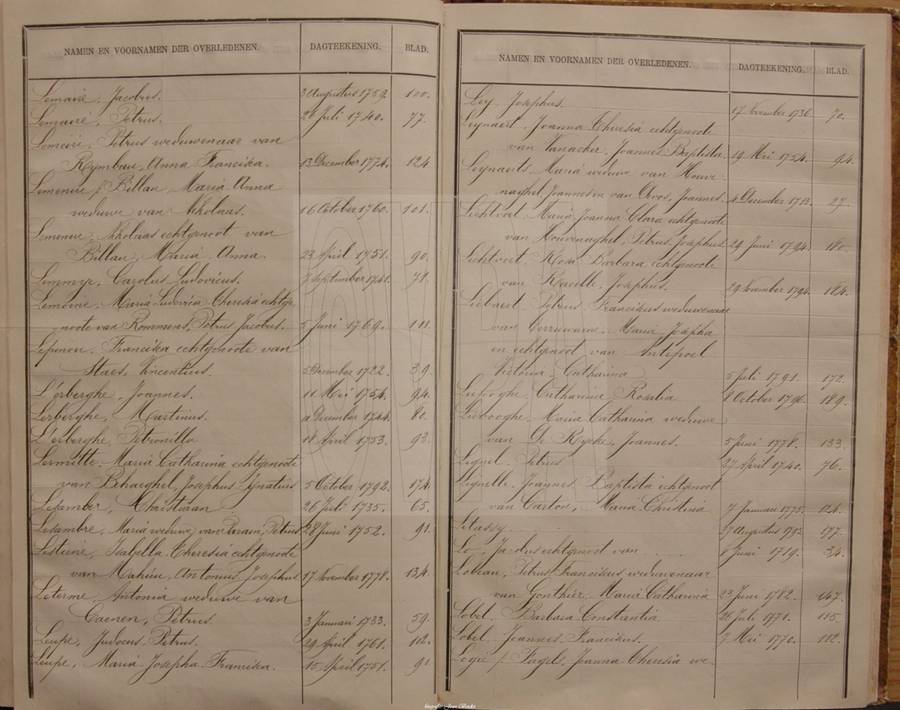 NAMEN EN VOORNAMEN DER OVERLEDENEN. DAGTEEKENING. BLAD.
Lemaire, Jacobus. 3 Augustus 1759. 100.
Lemaire, Petrus. 26 Juli 1740. 77.
Lemeire, Petrus weduwenaar van
Rymbau, Anna Francisca. 13 December 1774. 124.
Lemenue / Billau Maria Anna
weduwe van Nikolaas. 16 October 1760. 101.
Lemenue, Nikolaas echtgenoot van
Billau, Maria Anna. 23 April 1751. 90.
Lemmye, Carolus Ludovicus. 7 September 1741. 78.
Lemoine, Maria Ludovica Theresia echtge
noote van Rommens, Petrus Jacobus. 5 Juni 1769. 111.
Francisca echtgenoote van
Staes, Vincentius. 5 December 1722. 39.
L'erberghe, Joannes. 11 Mei 1754. 94.
Lerberghe, Martinus. December 1744. 80.
L'erberghe, Petronilla 18 April 1753. 93.
Lermitte, Maria Catharina echtgenoote
van Behaeghel, Josephus Ignatius 5 October 1792. 174.
Lesamber, Christiaan 26 Juli 1735. 65.
Lesambre, Maria weduwe van Petrus 28 Juni 1752. 91.
Isabella Theresia echtgenoote
van Mahieu, Antonius Josephus 17 November 1778. 134.
Leterme, Antonia weduwe van
Caenen, Petrus 3 Januari 1733. 59.
Leupe, Judocus Petrus. 29 April 1761. 102.
Leupe, Maria Josepha Francisca. 15 April 1751. 91.
NAMEN EN VOORNAMEN DER OVERLEDENEN. DAGTEEKENING. BLAD.
Ley, Josephus. 17 November 1736. 70.
Leynaert, Joanna Theresia echtgenoote
van Vanacker, Joannes Baptista 19 Mei 1754. 94.
Leynaerts Maria weduwe van Houve
naghel Joannes en van Joannes. 4 December 1713. 27.
Lichtvoet Maria Joanna Clara echtgenoote
van Houvenaghel, Petrus Josephus 24 Juni 1794. 180.
Lichtvoet, Rosa Barbara echtgenoote
van Josephus. 29 November 1794. 184.
Liebaert, Petrus Franciscus weduwenaar
van Maria Josepha
en echtgenoot van
Victoria Catharina 5 Juli 1791. 172.
Catharina Rosalia 1 October 1796. 189.
Maria Catharina weduwe
van De Rycke, Joannes. 5 Juni 1778. 133.
Lignel, Petrus 27 April 1740. 76.
Lignette, Joannes Baptista echtgenoot
van Maria Christina 7 Januari 1775. 124.
Litassy. 27 Augustus
Lo, echtgenoot van ..... 8 Juni 1719. 34.
Lobeau, Petrus Franciscus weduwenaar
van Gonthier, Maria Catharina 23 Juni 1782. 147.
Lobel, Barbara Constantia 26 Juli 1771. 115.
Lobel, Joannes Franciscus. 7 Mei 1770. 112.
Logie / Pagels, Joanna Theresia we-